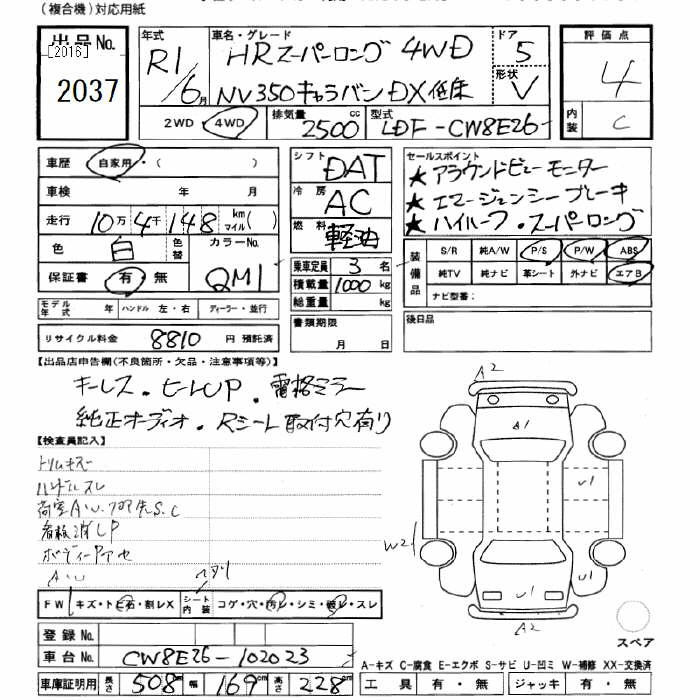 (複合機)対応用紙
出品No. [2016] 2037
年式 R1/6月
車名・グレード HRスーパーロング 4WD
NV350キャラバン DX低床
ドア 5
形状 V
評価点 4
内装 C
2WD・4WD
排気量 2500cc
型式 LDF-CW8E26-
車歴 自家用・( )
車検 年 月
走行 10万4千148 km マイル( )
色 白 色替
カラーNo. QM1
保証書 有・無
シフト DAT
冷房 AC
燃料 軽油
乗車定員 3名
積載量 1000kg
総重量 kg
書類期限 月 日
セールスポイント
★アラウンドビューモニター
★エマージェンシーブレーキ
★ハイルーフ・スーパーロング
装備品 S/R 純A/W P/S P/W ABS
純TV 純ナビ 革シート 外ナビ エアB
ナビ型番:
後日品
モデル年式 年 ハンドル 左・右 ディーラー・並行
リサイクル料金 8810円 預託済
【出品店申告欄(不良箇所・欠品・注意事項等)】
キーレス・ヒートUP・電格ミラー
純正オーディオ・Rシート取付穴有り
【検査員記入】
トリムキズ
ハンドルスレ
荷室A.U.
看板消しP
A.U
FW キズ・トビ石・割レX
シート内装 ヘタリ コゲ・穴・汚レ・シミ・破レ・スレ
A2
A1
U1
W2
U1
U1
A2
スペア
登録No.
車台No. CW8E26-102023
車庫証明用 長さ508m 幅169cm 高さ228cm
A-キズ C-腐食 E-エクボ S-サビ U-凹ミ W-補修 XX-交換済
工具 有・無 ジャッキ 有・無